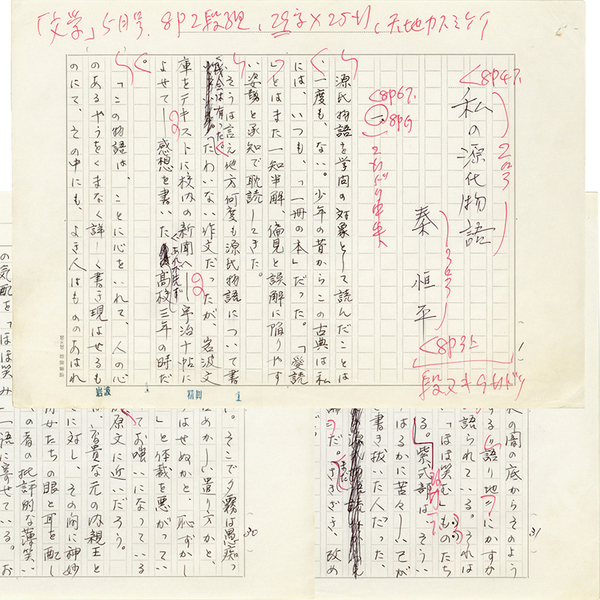 「文学」5月号、8P2段組、29字×25行、天地カスミケイ
<8P47.
2・a・3
私の源氏物語
秦 恒平
<8P35
段ヌキ9行ドリ
<8P67.
一、
8PG
2行ドリ中央
源氏物語を学問の対象として読んだことは
一度も、ない。少年の昔からこの古典は私
には、いつも、「一冊の本」だった。「愛読
」とはまた一知半解、偏見と誤解に陥りやす
い姿勢と承知で耽読してきた。
そうは言え地方何度も源氏物語について書
く機会は有った。たわいない作文だったが、岩波文
庫をテキストに校内の新聞へ──宇治十帖に
よせて──感想を書いた。高校三年の時だ
「この物語は、ことに心をいれて、人の心
のあるやうをくまなく詳しく書き現はせるも
のにて、その中にも、よき人はもののあはれ
岩波
1
の闇の底からそのよう
する語り地にかすか
語られている。それは
「ほほ笑む」ものたち
る。紫式部は、そうい
はるかに苦々しいてが
書き抜いた人だった。
だ。さきざき、改め
31
、そこで夕霧は愚痴っ
めかしい貰り方かと、
はせぬかと、恥ずかし
」と体裁を悪がってい
てお喋いになっている
原文に近いだろう。
い、高貴な元の内親王と
女たちの眼と耳を配し
に対し、その間に神妙
の者の批評的な薄笑い
一語に寄せている。
の気配を「ほほ笑み
30